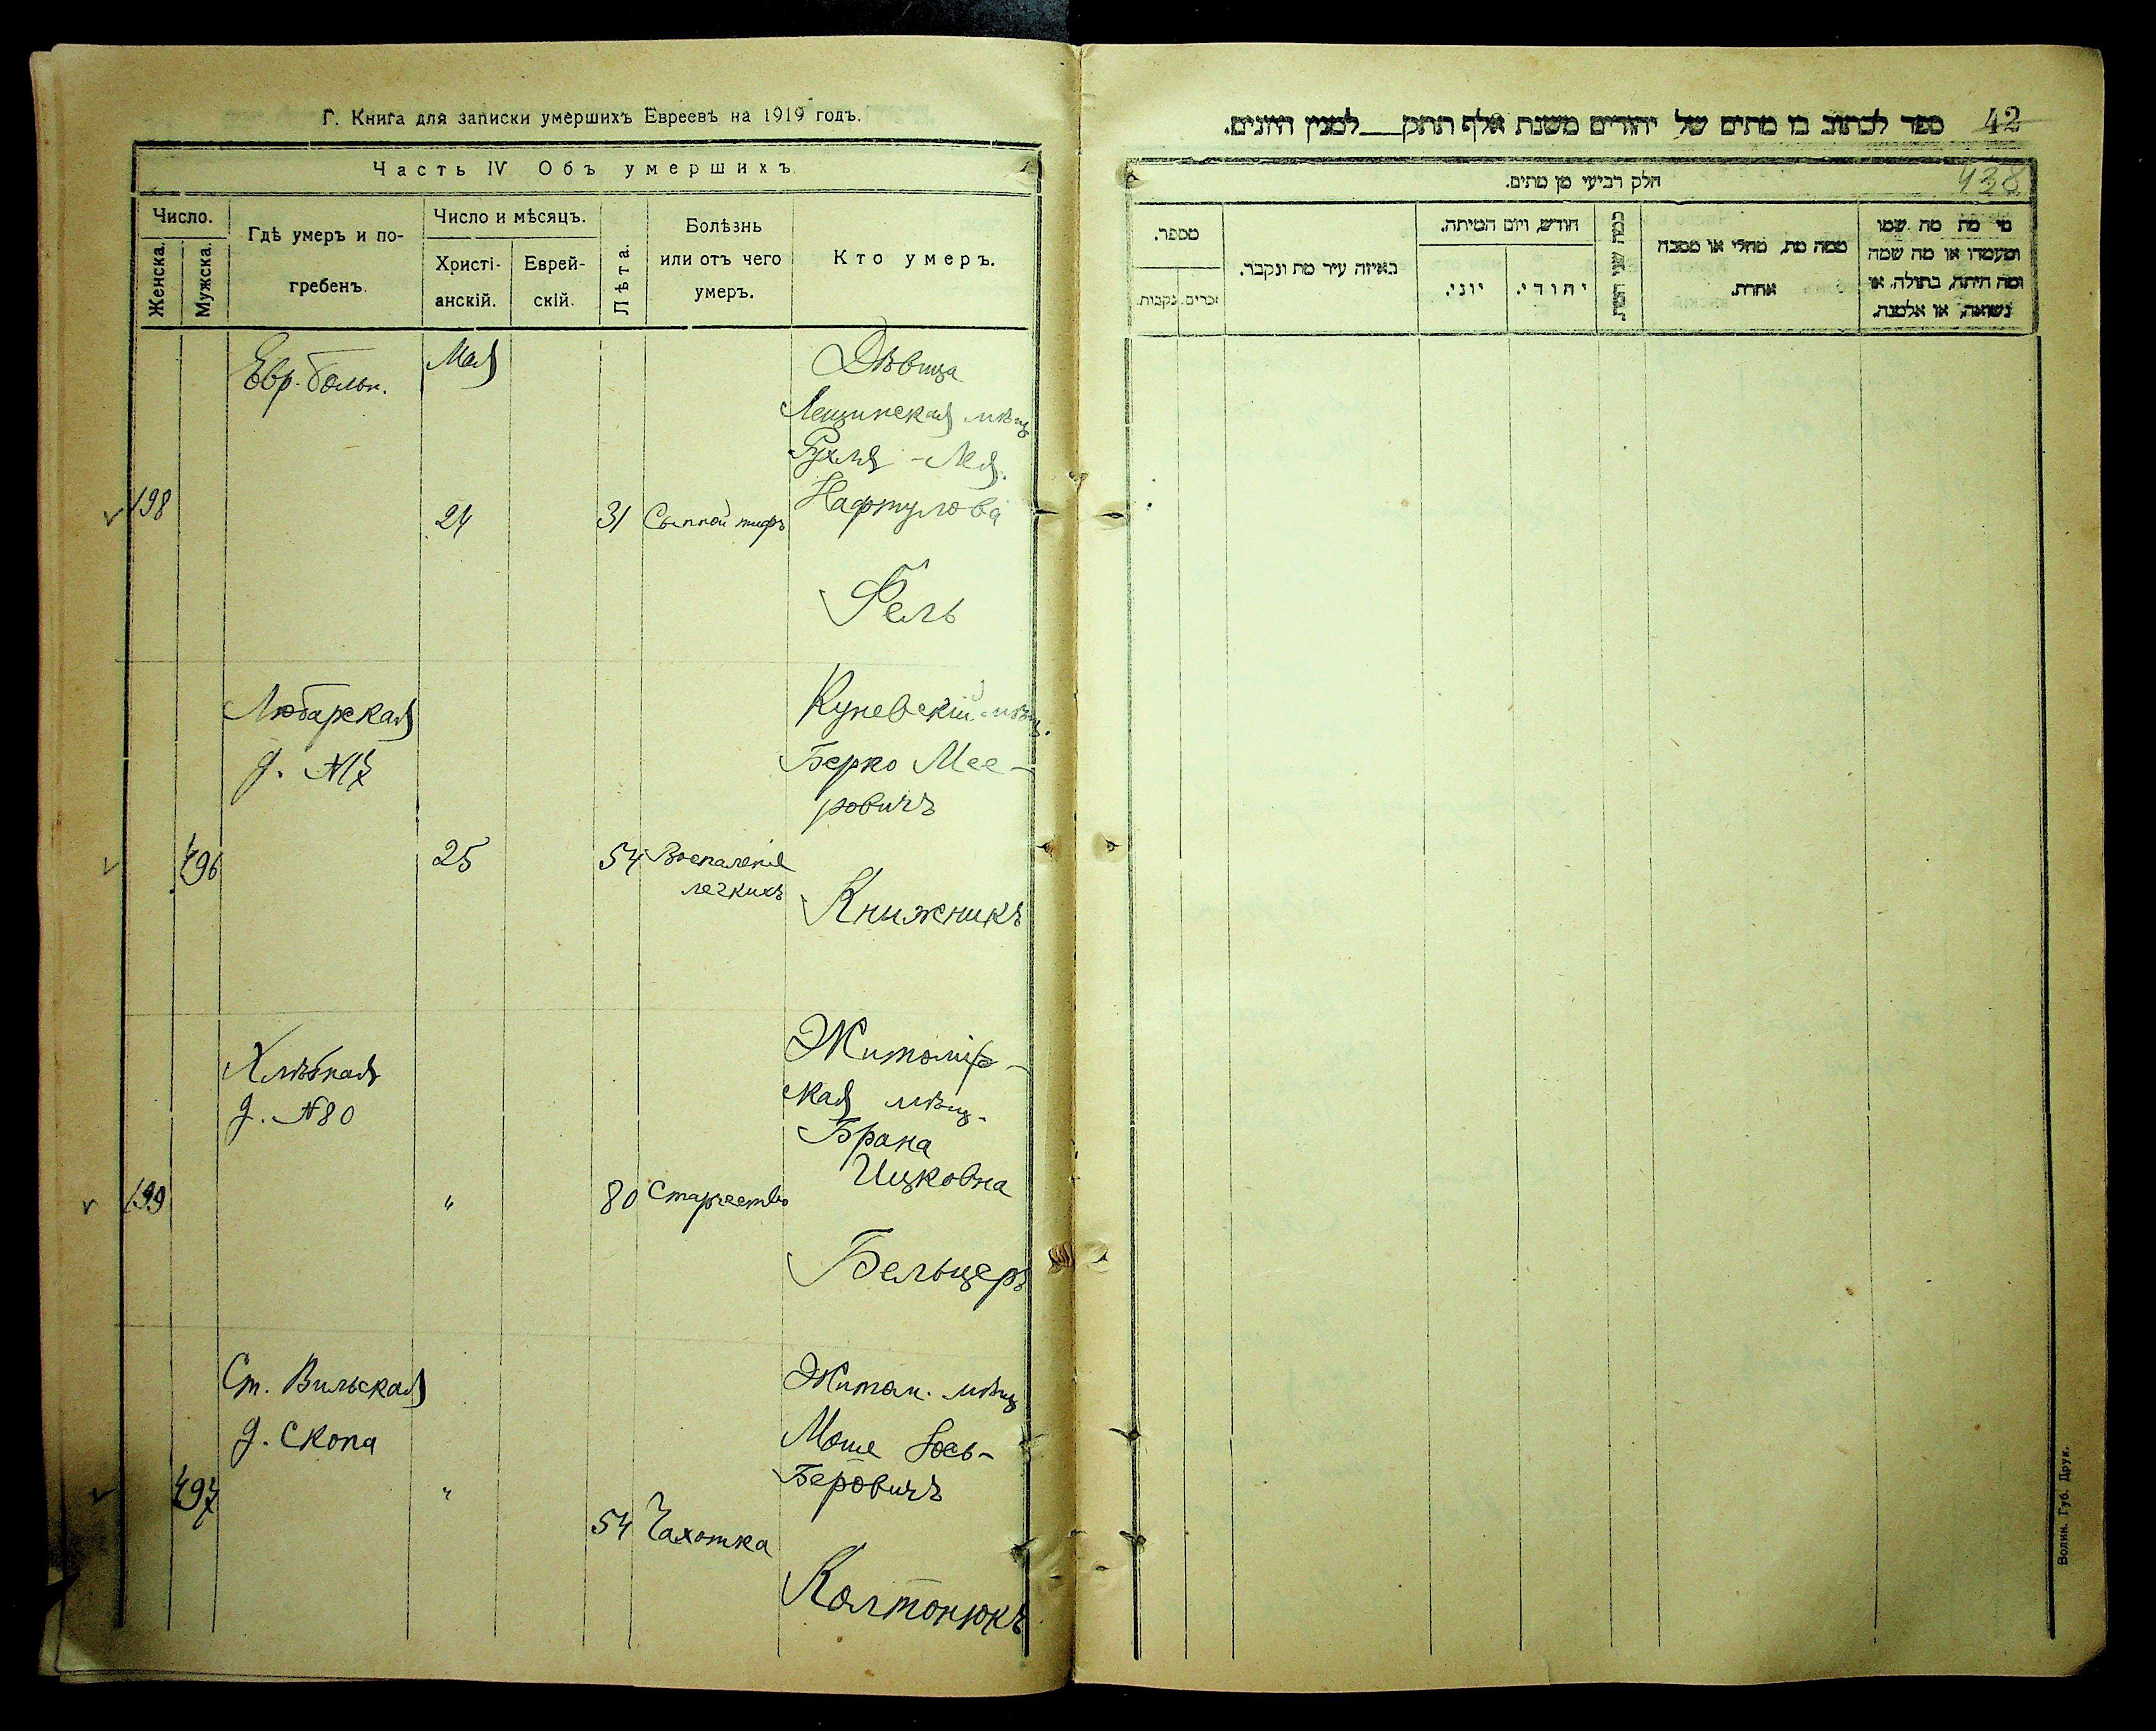 Г. Книга для записки умершихъ Евреевъ на 1919 годъ.
Часть IV Объ умершихъ.
Число.
Женска.
Мужска.
Гдѣ умеръ и по-
гребенъ.
Число и мѣсяцъ.
Христі-
анскій.
Еврей-
скій.
Лѣта.
Болѣзнь
или отъ чего
умеръ.
Кто умеръ.
Евр. больн.
Мая
Дѣвица
Лещинская мѣщ
Рухля-Лея
Нафтулова
198
24
31
Сыпной тифъ
Фель
Любарская
д. №17
Куневскій мѣщ.
Берко Мее-
ровичъ
496
25
54
Воспаленіе
легкихъ
Книжникъ
Хлѣбная
д. №80
Житомір-
ская мѣщ-
Брана
Ицковна
199
"
80
Старчество
Бельцеръ
Ст. Вильская
д. Скопа
Житом. мѣщ
Моше Іось-
Беровичъ
497
"
54
Чахотка
Колтонюкъ
ספר לכתוב בו מתים של יהודים משנת אלף תתק למנין היונים.
42
חלק רביעי מן מתים.
438
מספר.
זכרים.
נקבות.
באיזה עיר מת ונקבר.
חודש, ויום המיתה.
יוני.
יהודי.
כמה שני המת
ממה מת, מחלי או מסבה
אחרת.
מי מת מה שמו
ומעמדו או מה שמה
ומה היתה, בתולה, או
נשואה, או אלמנה.
Волин. Губ. Друк.